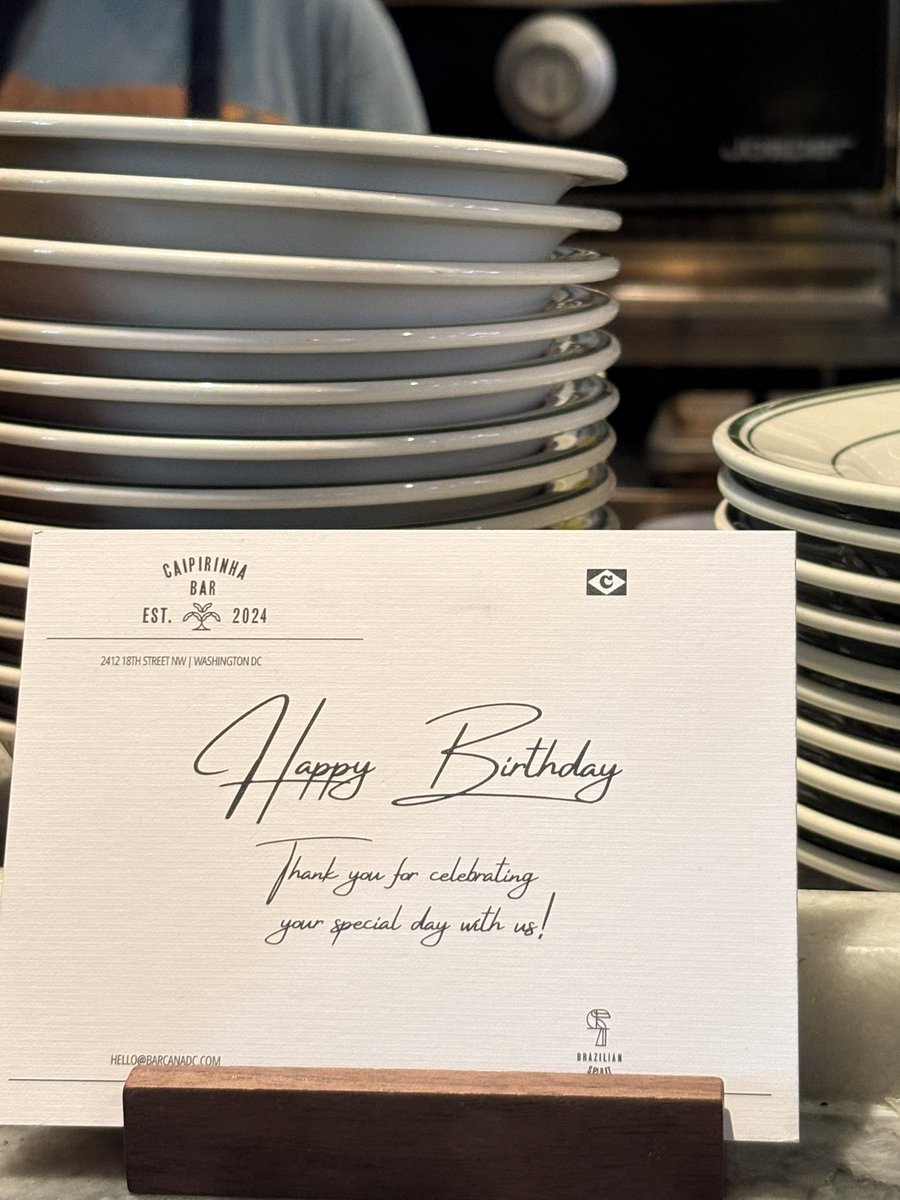 CAIPIRINHA
BAR
EST. 2024
C
2412 18TH STREET NW | WASHINGTON DC
Happy Birthday
Thank you for celebrating
your special day with us!
HELLO@BARCANADC.COM
BRAZILIAN
SPIRIT